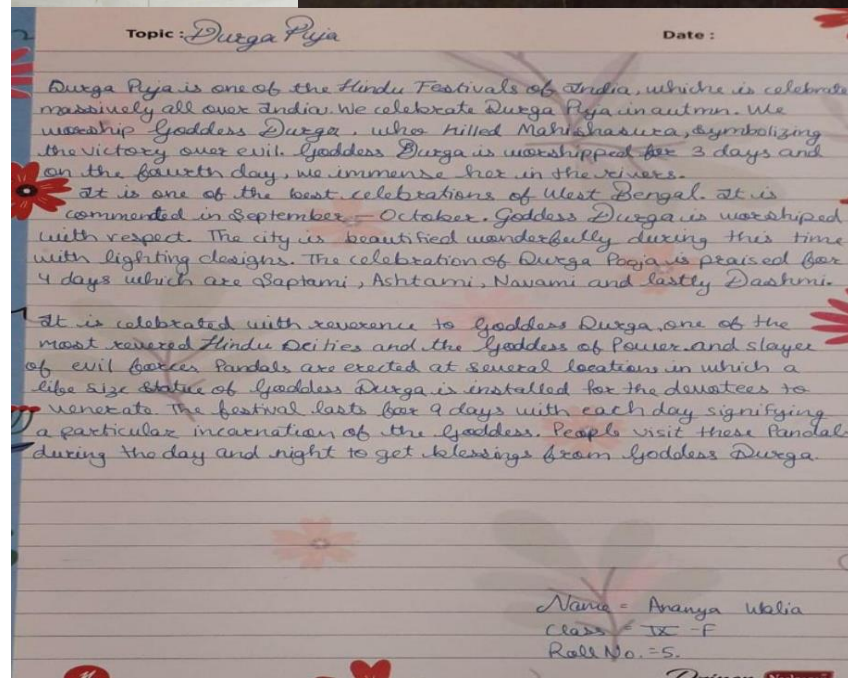 Topic : Durga Puja
Date :
Durga Puja is one of the Hindu Festivals of India, whiche is celebrate
massively all over India. We celebrate Durga Puja in autmn. We
worship Goddess Durga, who killed Mahishasura, symbolizing
the victory over evil. Goddess Durga is worshipped for 3 days and
on the fourth day, we immense her in the rivers.
It is one of the best celebrations of West Bengal. It is
commented in September - October. Goddess Durga is worshiped
with respect. The city is beautified wonderfully during this time
with lighting designs. The celebration of Durga Pooja is praised for
4 days which are Saptami, Ashtami, Navami and lastly Dashmi.
It is celebrated with reverence to Goddess Durga, one of the
most revered Hindu Deities and the Goddess of Power and slayer
of evil forces Pandals are erected at several locations in which a
life size statue of Goddess Durga is installed for the devotees to
venerate. The festival lasts for 9 days with each day signifying
a particular incarnation of the Goddess. People visit these Pandals
during the day and night to get blessings from Goddess Durga.
Name = Ananya Walia
Class = IX - F
Roll No. = 5.